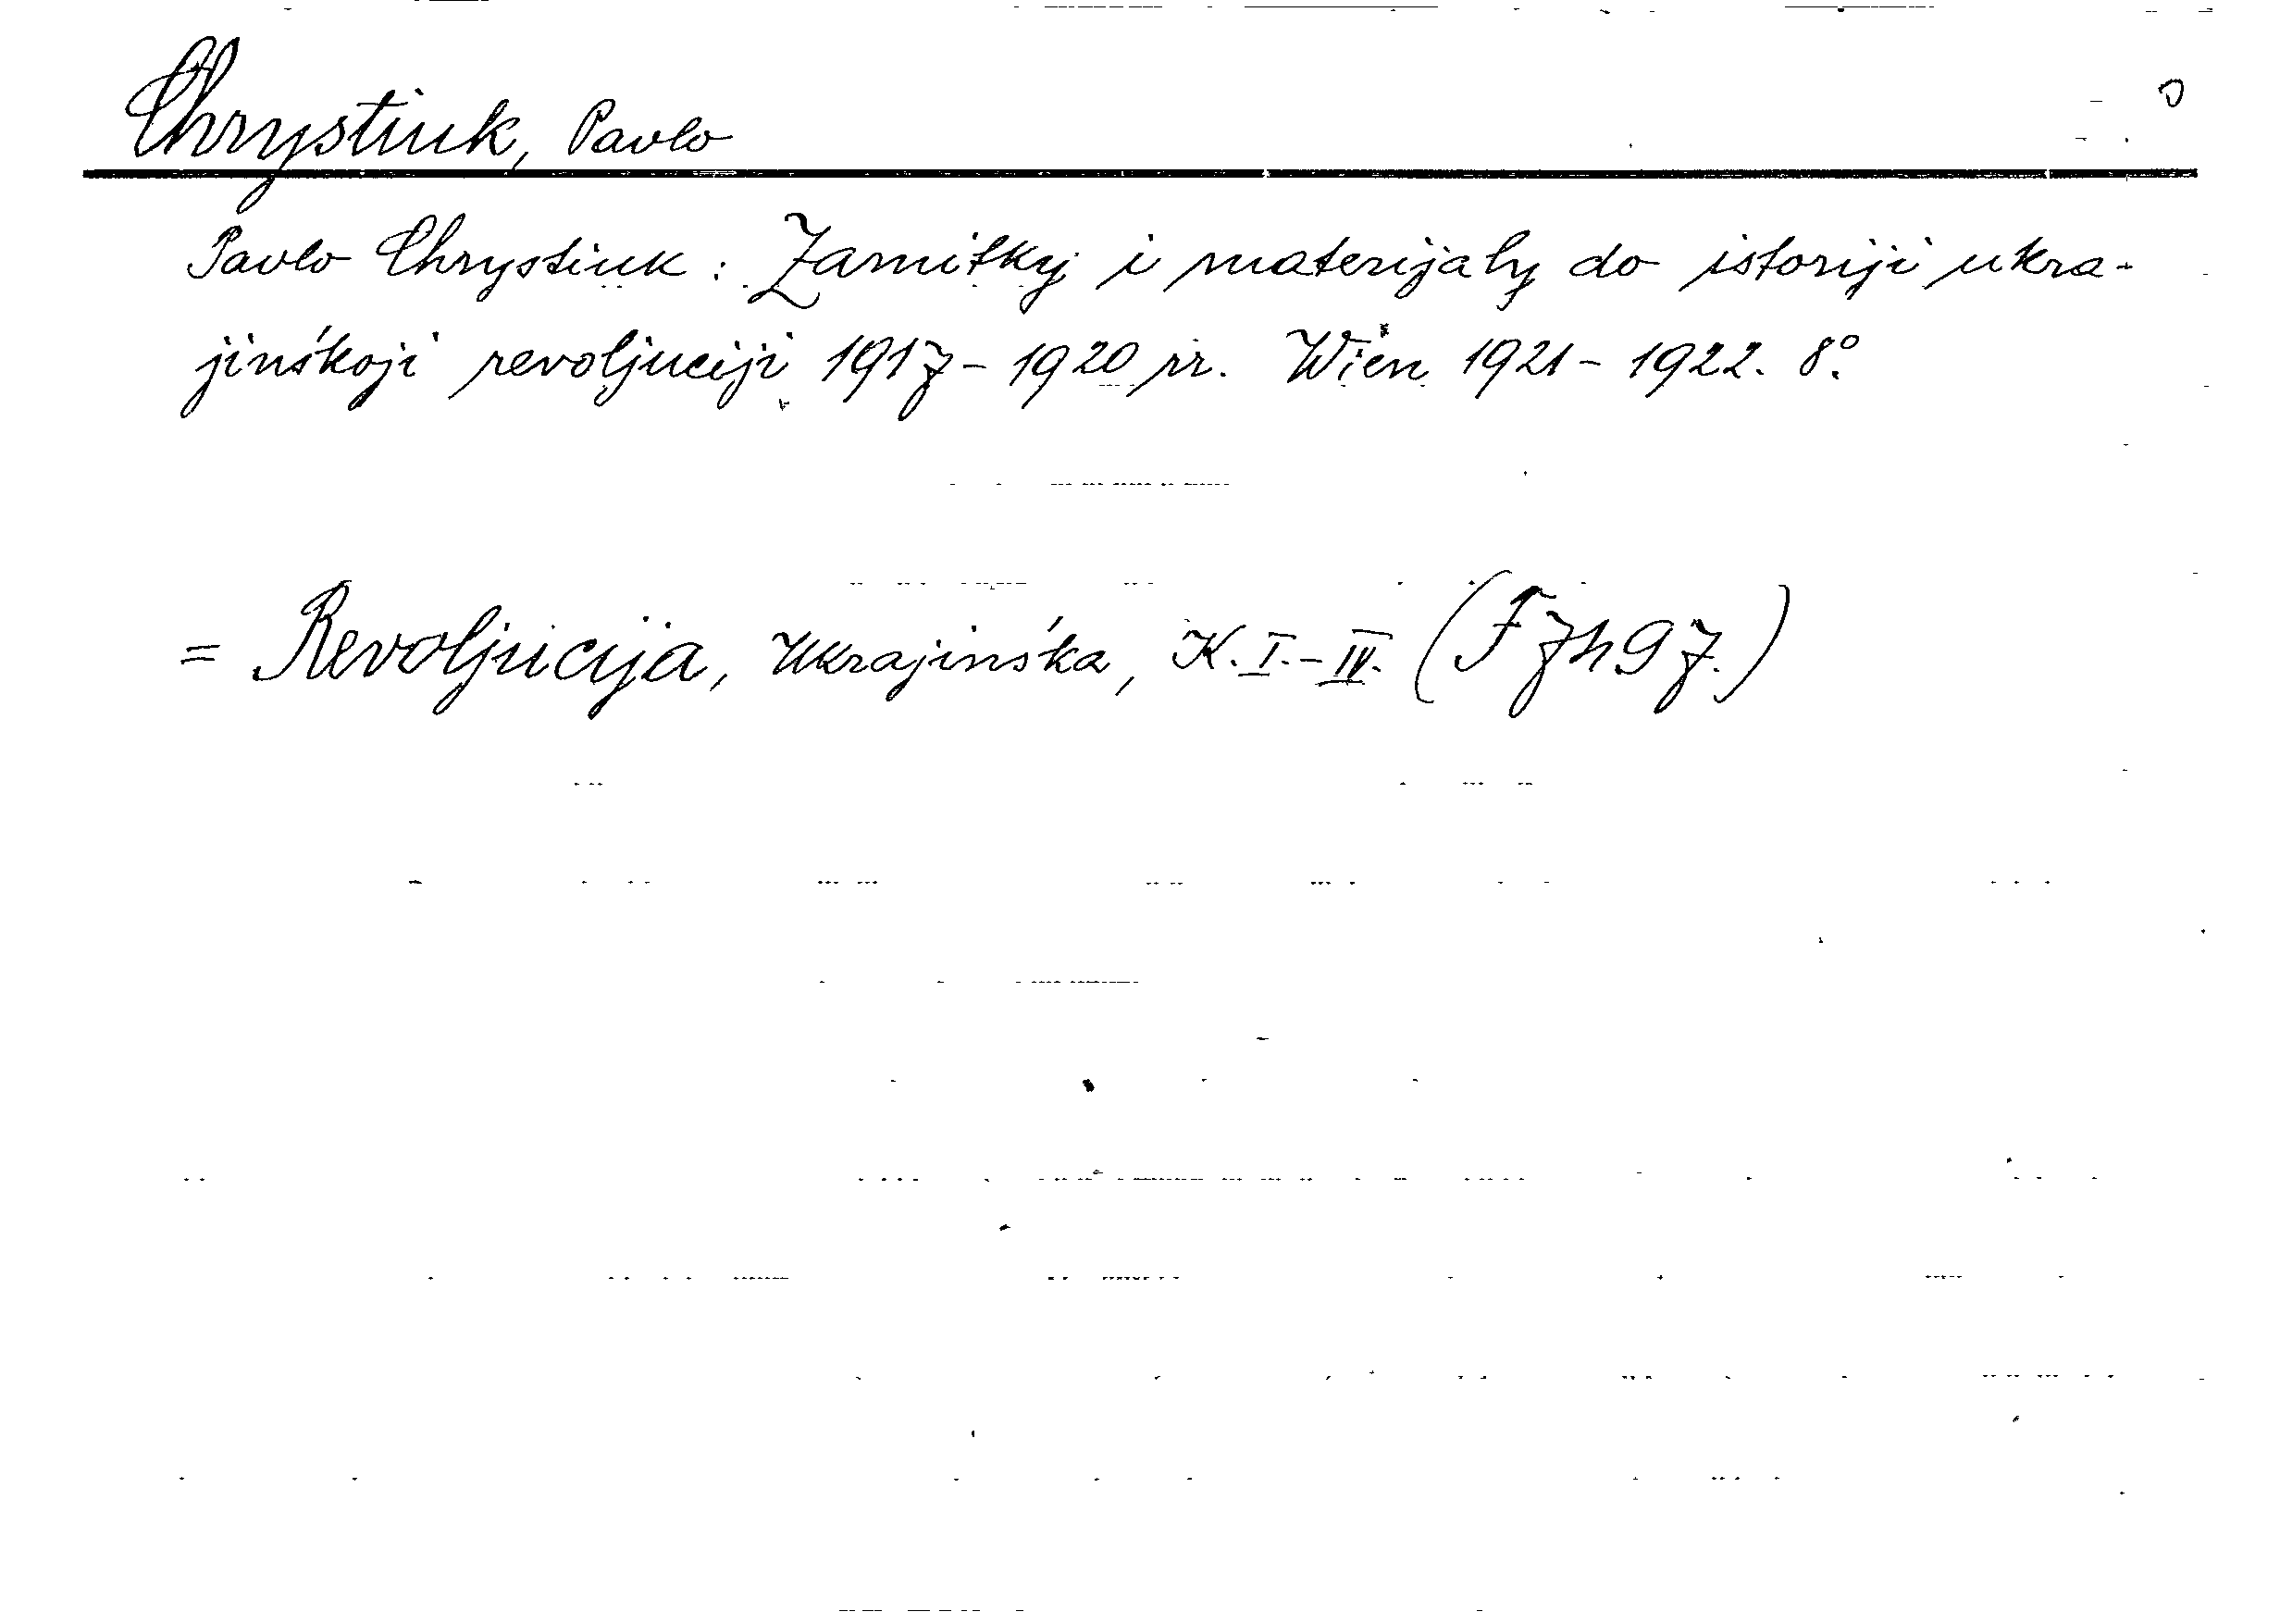 Chrystiuk, Pavlo
Pavlo Chrystiuk: Zamitky i materijaly do istoriji ukra-
jinśkoji revoljuciji 1917-1920 rr. Wien 1921-1922. 8°.
= Revoljucija, Ukrajinśka, K. I.-IV. (F7h97.)